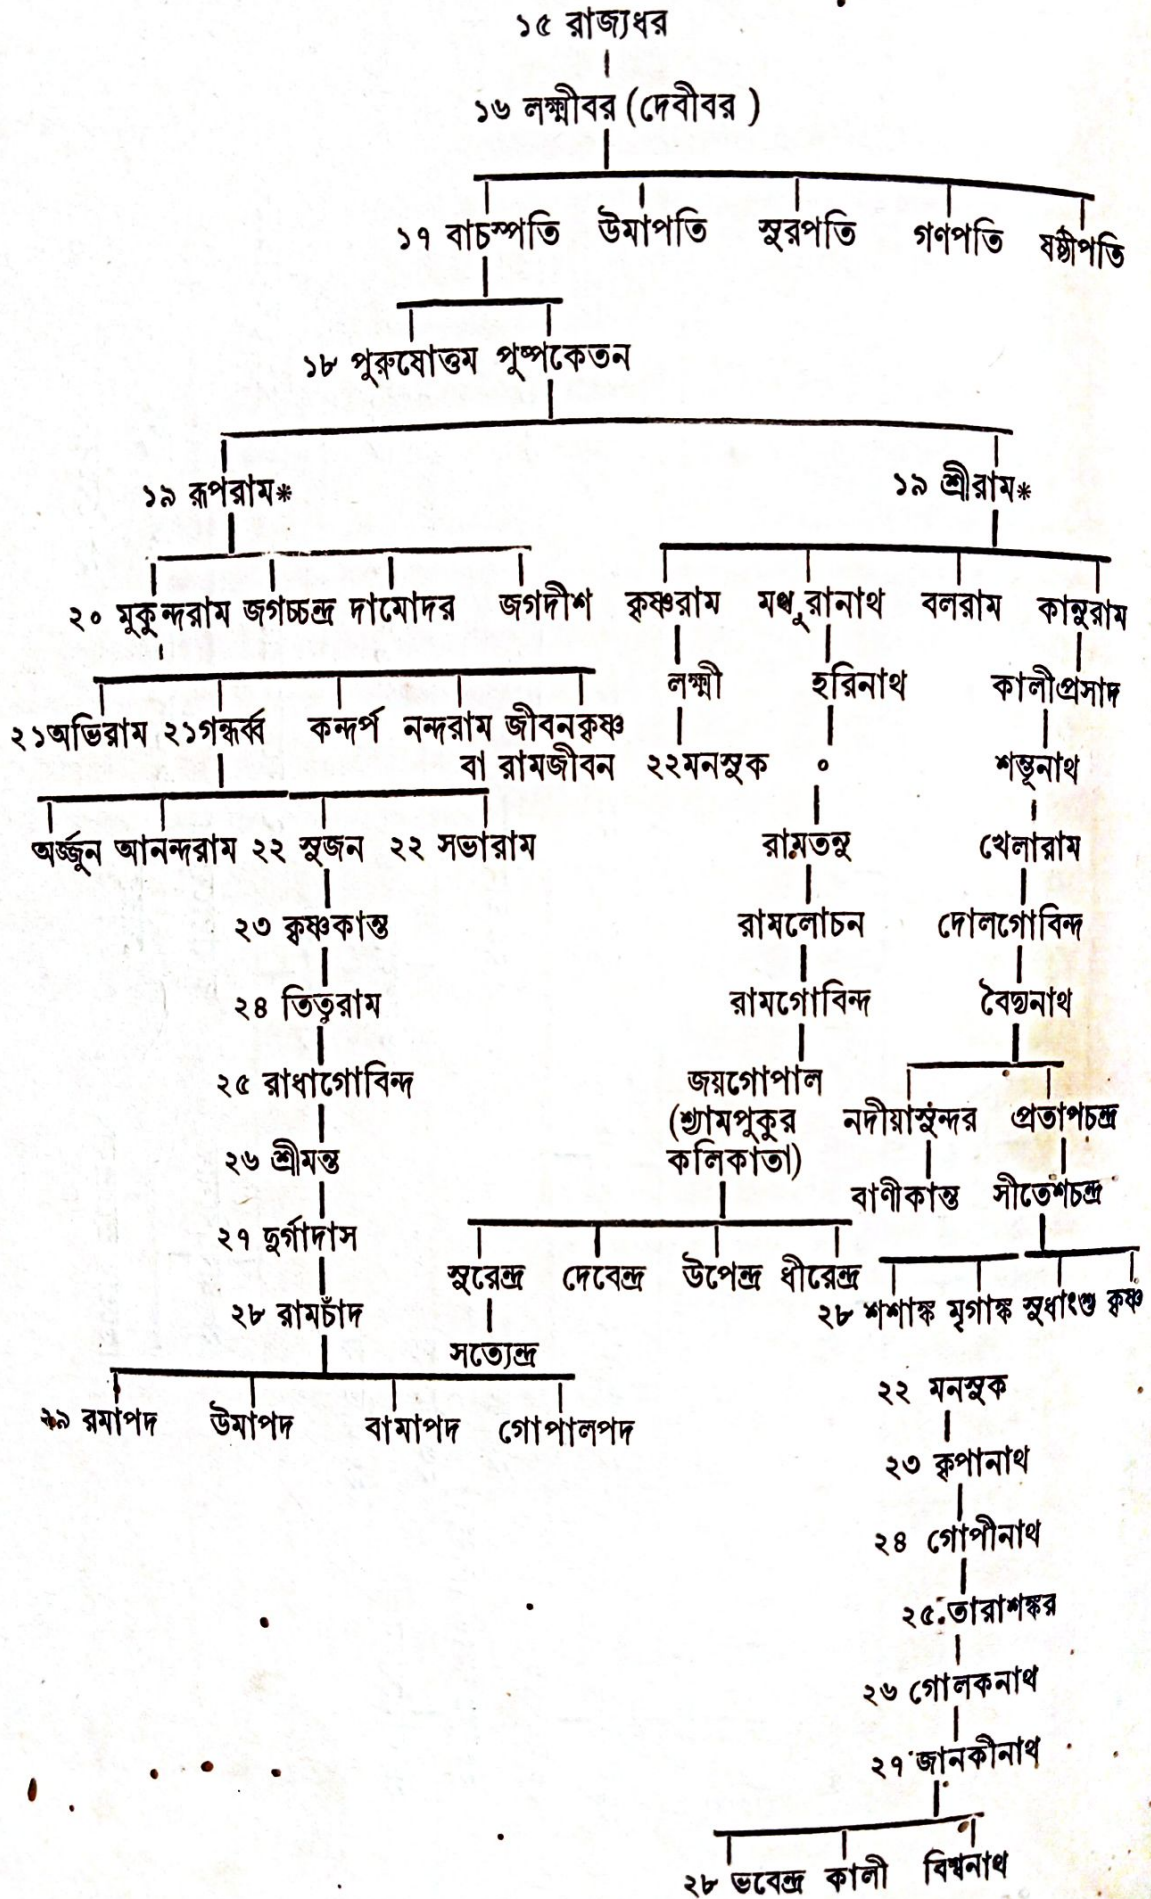 ১৫ রাজ্যধর
১৬ লক্ষ্মীবর (দেবীবর )
১৭ বাচস্পতি উমাপতি সুরপতি গণপতি ষষ্ঠীপতি
১৮ পুরুষোত্তম পুষ্পকেতন
১৯ রূপরাম* ১৯ শ্রীরাম*
২০ মুকুন্দরাম জগচ্চন্দ্র দামোদর জগদীশ কৃষ্ণরাম মথুরানাথ বলরাম কানুরাম
লক্ষ্মী হরিনাথ কালীপ্রসাদ
২১অভিরাম ২১গন্ধর্ব্ব কন্দর্প নন্দরাম জীবনকৃষ্ণ
বা রামজীবন ২২মনসুক ০ শম্ভূনাথ
অর্জ্জুন আনন্দরাম ২২ সুজন ২২ সভারাম রামতনু খেলারাম
২৩ কৃষ্ণকান্ত রামলোচন দোলগোবিন্দ
২৪ তিতুরাম রামগোবিন্দ বৈদ্যনাথ
২৫ রাধাগোবিন্দ জয়গোপাল
(শ্যামপুকুর নদীয়াসুন্দর প্রতাপচন্দ্র
২৬ শ্রীমন্ত কলিকাতা)
বাণীকান্ত সীতেশচন্দ্র
২৭ দুর্গাদাস
সুরেন্দ্র দেবেন্দ্র উপেন্দ্র ধীরেন্দ্র
২৮ রামচাঁদ ২৮ শশাঙ্ক মৃগাঙ্ক সুধাংশু কৃষ্ণ
সত্যেন্দ্র
২২ মনসুক
২৯ রমাপদ উমাপদ বামাপদ গোপালপদ
২৩ কৃপানাথ
২৪ গোপীনাথ
২৫ তারাশঙ্কর
২৬ গোলকনাথ
২৭ জানকীনাথ
২৮ ভবেন্দ্র কালী বিশ্বনাথ